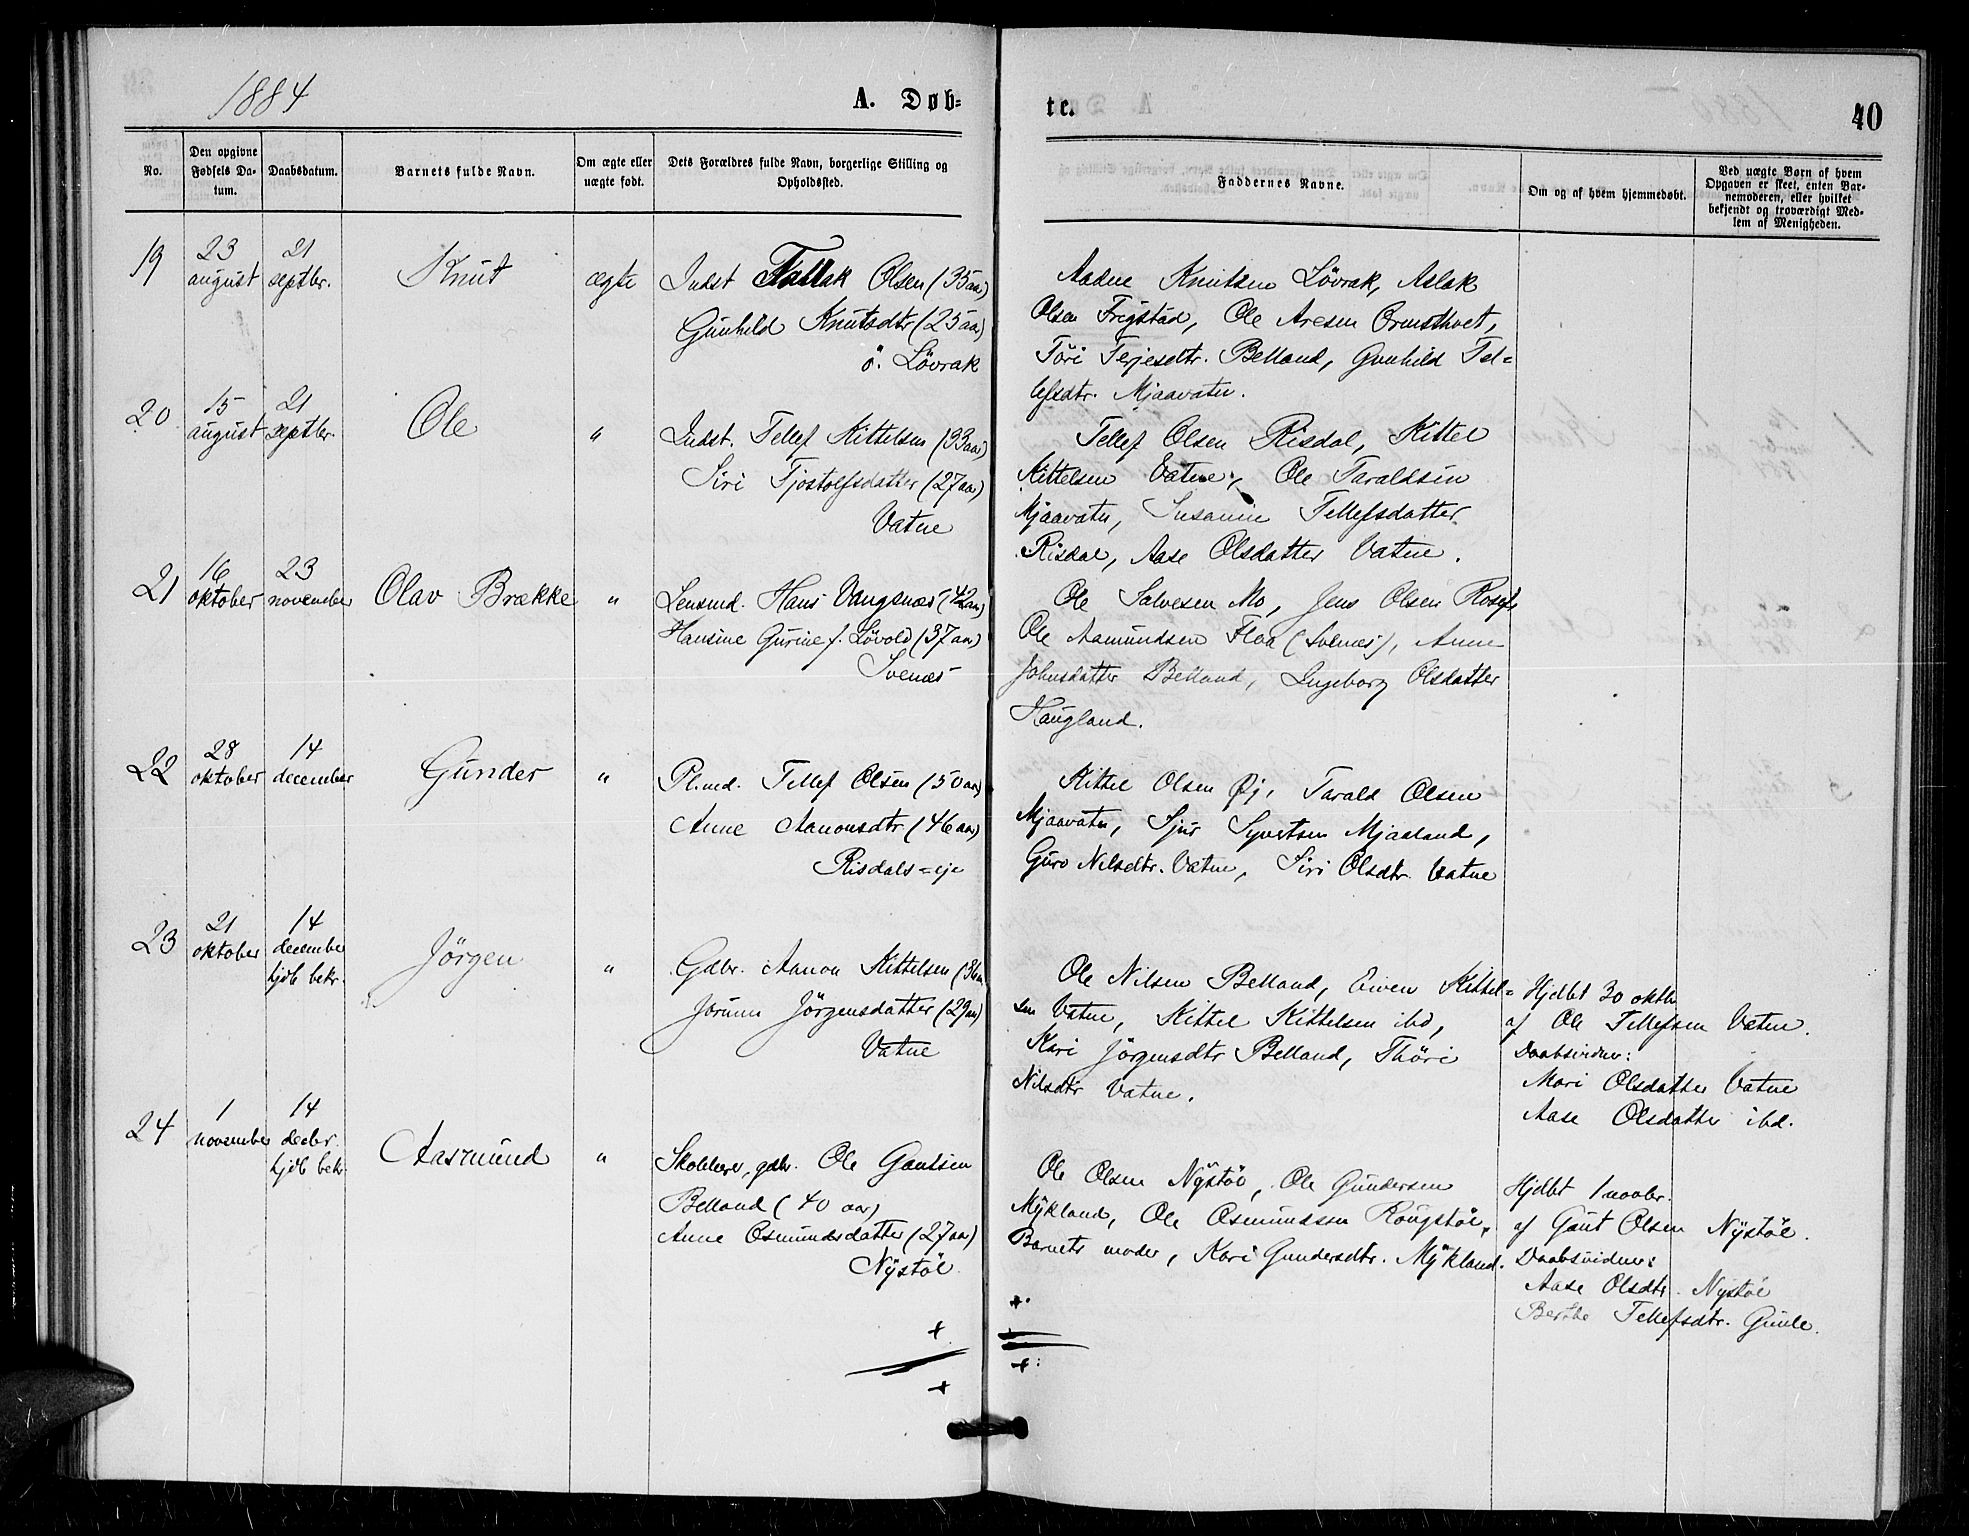 1884
A. Døb-
te.
40
No.
Den opgivne Fødsels Da-tum.
Daabsdatum.
Barnets fulde Navn.
Om ægte eller uægte født.
Dets Forældres fulde Navn, borgerlige Stilling og Opholdssted.
Faddernes Navne.
Om og af hvem hjemmedøbt.
Ved uægte Børn af hvem Opgaven er skeet, enten Bar-nemoderen, eller hvilket bekjendt og troværdigt Med-lem af Menigheden.
19
23 august
21 septbr.
Knut
ægte
Indst Tallak Olsen (35 aar)
Gunhild Knutsdtr (25 aar)
ö. Lövrak
Aadne Knutsen Lövrak, Aslak
Olsen Frigstad, Ole Aresen Ormsthvet,
Töri Terjesdtr. Belland, Gunhild Tel=
lefsdtr. Mjaavatn.
20
15 august
21 septbr.
Ole
"
Indst. Tellef Kittelsen (33 aar)
Siri Tjostolfsdatter (27 aar)
Vatne
Tellef Olsen Risdal, Kittel
Kittelsen Vatne, Ole Taraldsen
Mjaavatn, Susanne Tellefsdatter
Risdal, Aase Olsdatter Vatne.
21
16 oktober
23 november
Olav Brække
"
Lensmd. Hans Vangsnæs (42 aar)
Hansine Gurine f. Lövold (37 aar)
Svenæs
Ole Salvesen Mo, Jens Olsen
Ole Aamundsen Floa (Svenæs), Anne
Johnsdatter Belland, Ingeborg Olsdatter
Haugland.
22
28 oktober
14 december
Gunder
"
Pl.md. Tellef Olsen (50 aar)
Anne Aanonsdtr (46 aar)
Risdals=eje
Kittel Olsen Öj, Tarald Olsen
Mjaavatn, Sjur Syvertsen Mjaaland,
Guro Nilsdtr. Vatne, Siri Olsdtr. Vatne
23
21 oktober
14 december hjdb bekr.
Jörgen
"
Gdbr. Aanon Kittelsen (36 aar
Jorunn Jörgensdatter (29 aar)
Vatne
Ole Nilsen Belland, Eiven Kittel=
sen Vatne, Kittel Kittelsen ibd,
Kari Jörgensdtr Belland, Thöri
Nilsdtr Vatne.
Hjdbt 30 oktbr
af Ole Tellefsen Vatne.
Daabsvidner:
Mari Olsdatter Vatne
Aase Olsdatter ibd.
24
1 november
14 decbr. hjdb bekr.
Aasmund
"
Skolelærer, gdbr. Ole Gautsen
Belland (40 aar)
Anne Osmundsdatter (27 aar)
Nystöl
Ole Olsen Nystöl, Ole Gundersen
Mykland, Ole Osmundsen Rougstöl,
Barnets moder, Kari Gundersdtr. Mykland.
Hjdbt 1 novbr.
af Gaut Olsen Nystöl.
Daabsvidner:
Aase Olsdtr. Nystöl
Berthe Tellefsdtr. Gaule.